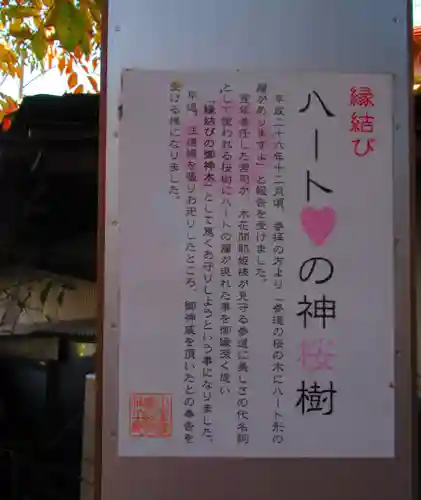 縁結び
ハート♥の神桜樹
平成二十六年十二月頃、参拝の方より「参道の桜の木にハート形の
扉がありますよ」と報告を受けました。
翌年着任した宮司が、木花開耶姫様が見守る参道に美しさの代名詞
として使われる桜樹にハートの扉が現れた事を御縁深く思い
「縁結びの御神木」として篤くお守りしようという事になりました。
年頭、注連縄を張りお祀りしたところ、御神威を頂いたとの奉告を
受ける様になりました。